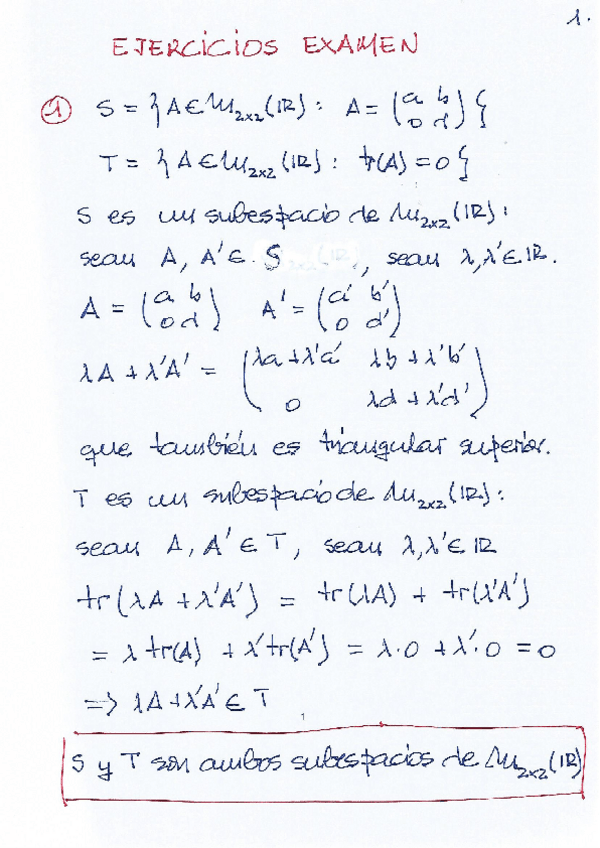 1.
EJERCICIOS EXAMEN
① S = { A ∈ M₂ₓ₂(ℝ) : A = (a b; 0 d) }
T = { A ∈ M₂ₓ₂(ℝ) : tr(A) = 0 }
S es un subespacio de M₂ₓ₂(ℝ) :
sean A, A' ∈ S , sean λ, λ' ∈ ℝ.
A = (a b; 0 d) A' = (a' b'; 0 d')
λA + λ'A' = (λa + λ'a' λb + λ'b'; 0 λd + λ'd')
que también es triangular superior.
T es un subespacio de M₂ₓ₂(ℝ) :
sean A, A' ∈ T, sean λ, λ' ∈ ℝ
tr(λA + λ'A') = tr(λA) + tr(λ'A')
= λ tr(A) + λ' tr(A') = λ·0 + λ'·0 = 0
=> λA + λ'A' ∈ T
S y T son ambos subespacios de M₂ₓ₂(ℝ)